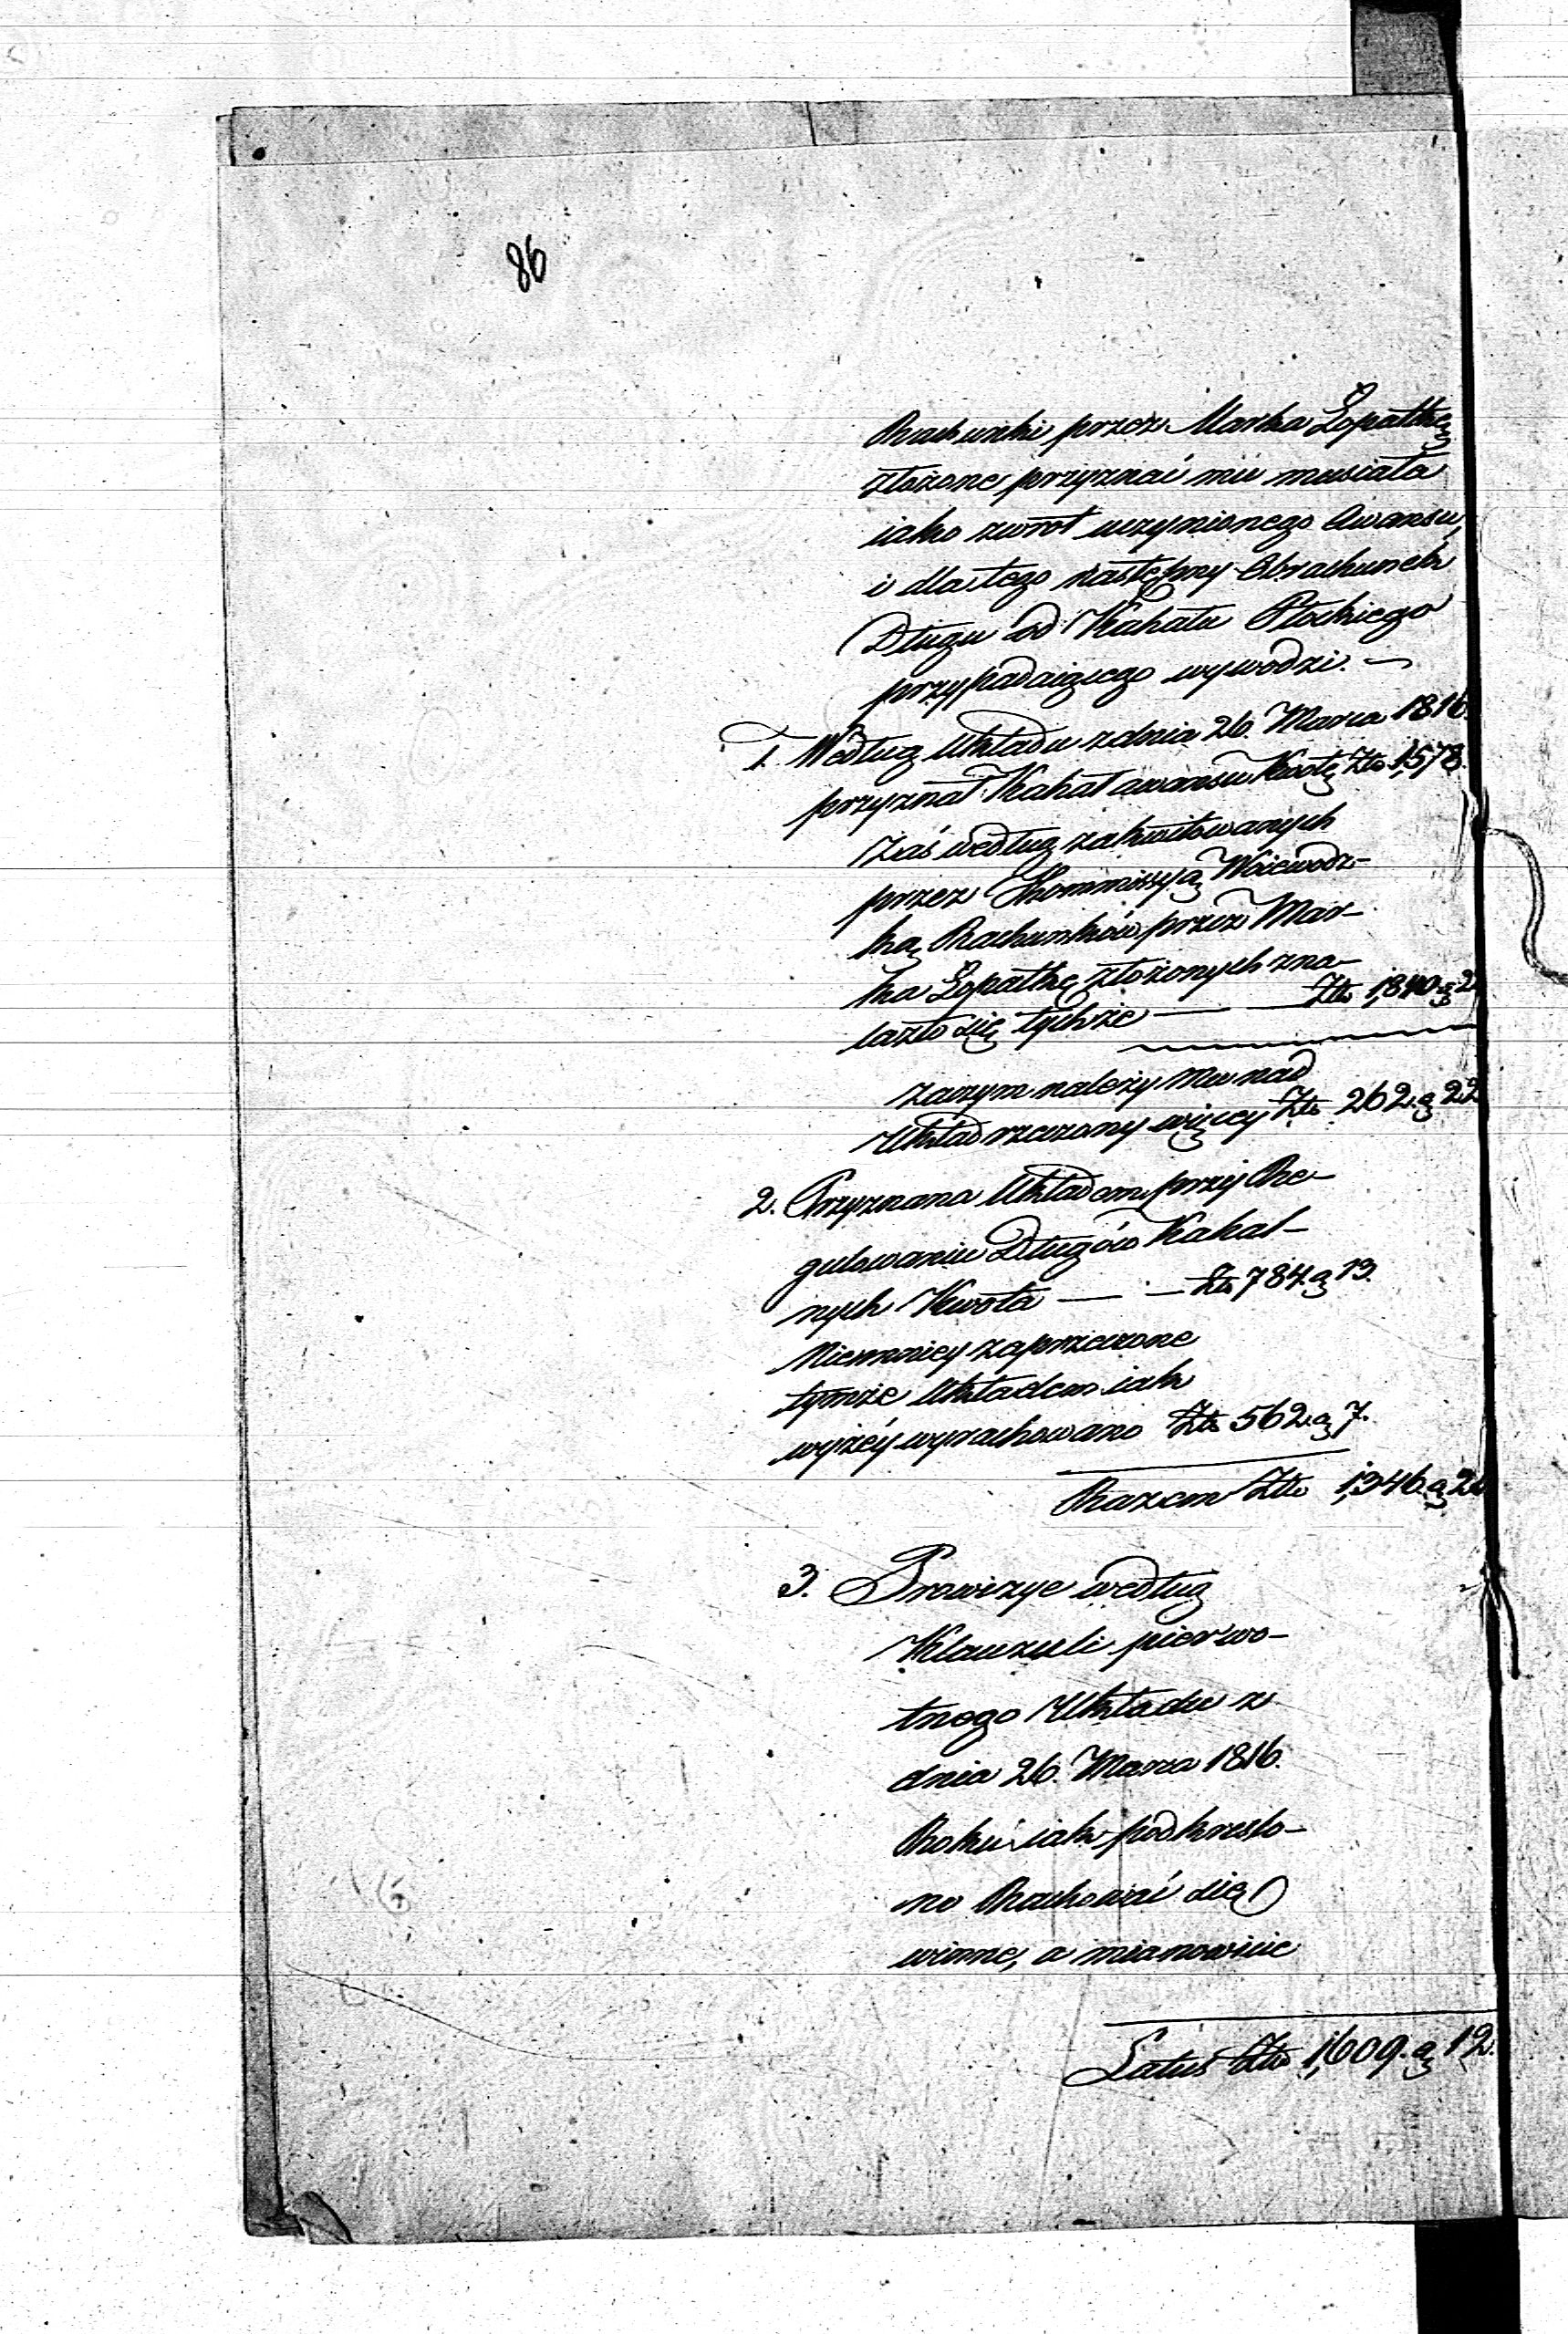 86
Rachunki przez Marka Łopatkę
złożone przyznać mu musiała
iako zwrot uczynionego Awansu,
i dla tego następny Obrachunek
Długu od Kahału Płockiego
przypadaiącego wywodzi. —
1. Według Układu z dnia 26. Marca 1816
przyznał Kahał awansu Kwotę Złp 1,578.
Zaś według zakwitowanych
przez Kommissyą Woiewodz-
ką Rachunków przez Mar-
ka Łopatkę złożonych zna-
lazło się tychże — — Złp 1,840 g 2
Zaczym należy mu nad
Układ rzeczony więcey Złp 262. g 22
2. Przyznana Układem przy Re-
gulowaniu Długów Kahal-
nych Kwota — — Złp 784. g 13.
Niemniey zaprzeczone
tymże Układem iak
wyżey wyrachowano Złp 562. g 7.
Razem Złp 1,346. g 2
3. Prowizye według
Klauzuli pierwo-
tnego Układu z
dnia 26. Marca 1816.
Roku iak podkreślo-
no Rachować się
winne, a mianowicie
Latus Złp 1,609. g 12.